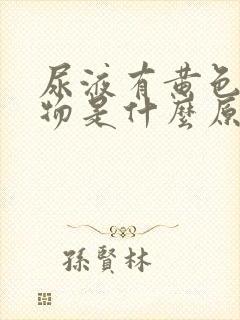 尿液有黄色
物是什麼原
孫賢林